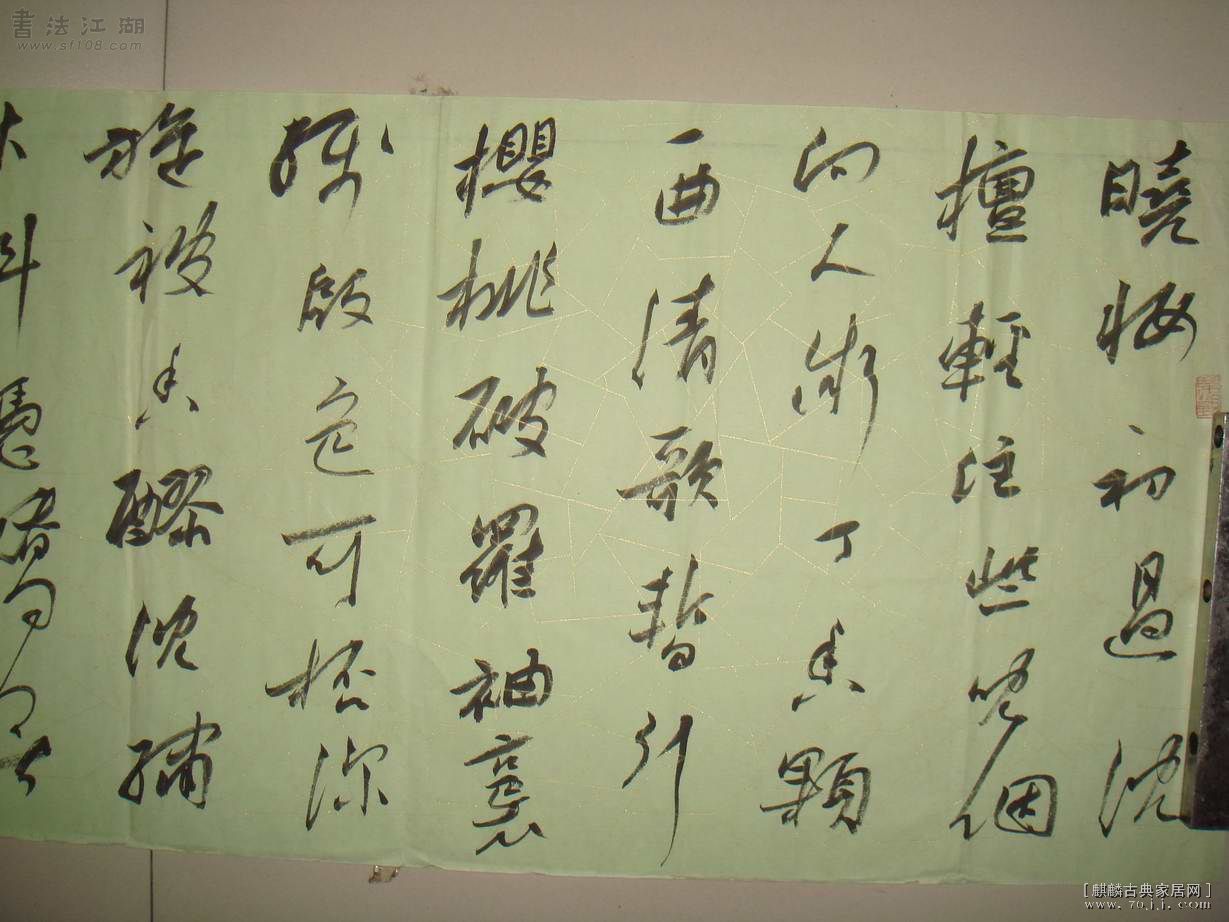 曉妝初過沈
檀輕注些兒個
向人微丁香顆
一曲清歌暫引
櫻桃破羅袖裛
殘殷色可杯深
旋被香醪涴繡
床斜憑
書法江湖
www.sf108.com
[麒麟古典家居网]
www.70jj.com